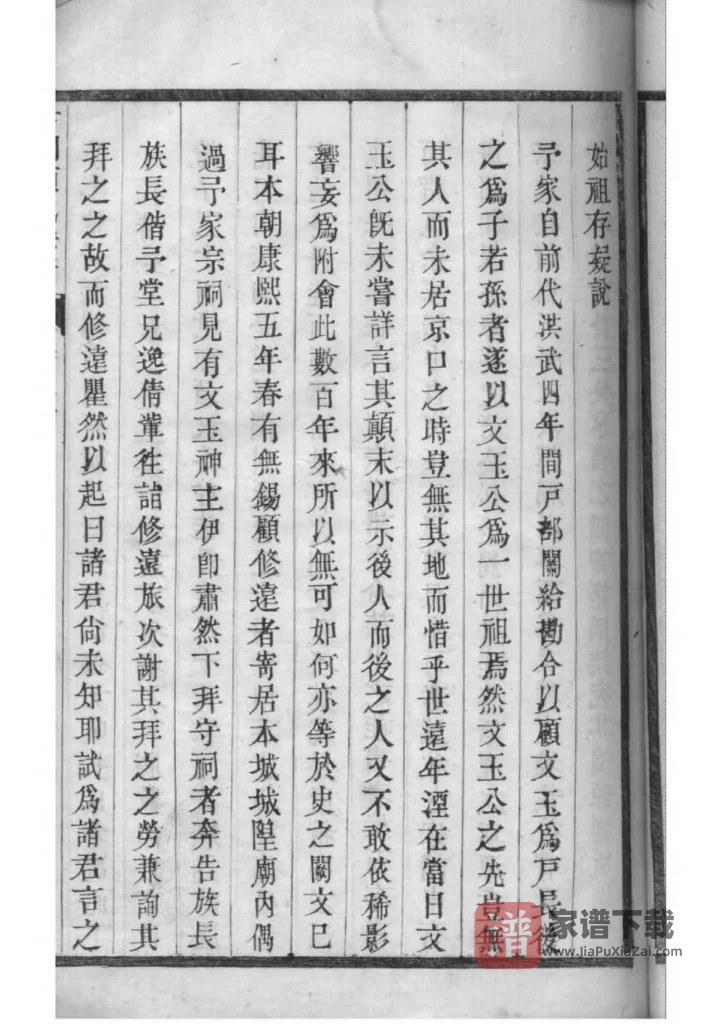 始祖存疑說
予家自前代洪武四年間戸部關給勘合以顧文玉爲戸長後
之爲子若孫者遂以文玉公爲一世祖焉然文玉公之先豈無
其人而未居京口之時豈無其地而惜乎世遠年湮在當日文
玉公旣未嘗詳言其顛末以示後人而後之人又不敢依稀影
響妄爲附會此數百年來所以無可如何亦等於史之闕文已
耳本朝康熙五年春有無錫顧修遠者寄居本城城隍廟內偶
過予家宗祠見有文玉神主伊卽肅然下拜守祠者奔告族長
族長偕予堂兄逸倩輩徃詣修遠旅次謝其拜之之勞兼詢其
拜之之故而修遠瞿然以起日諸君尙未知耶試爲諸君言之
譜
家谱下载
www.JiaPuXiaZai.com